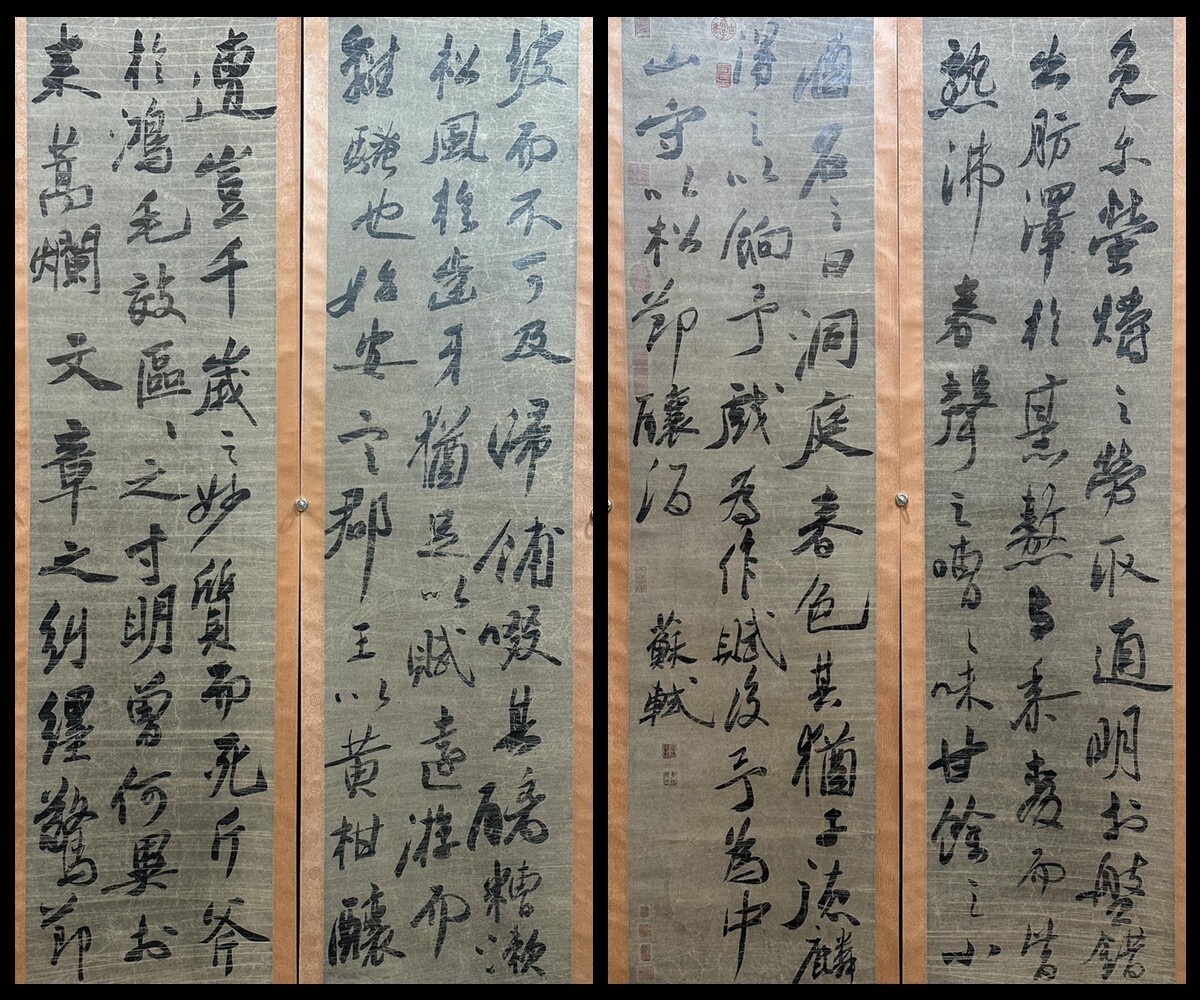 免尔螢爝之勞取通明於盤錯
出肪澤於烹熬與黍麥而皆
熟沸舂聲之嘈々味甘餘之小
酒名之曰洞庭春色其猶子德麟
得之以餉予戲為作賦後予為中
山守以松節釀酒 蘇軾
坡而不可及歸餔歠其醨糟漱
松風於齒牙猶足以賦遠遊而
離騷也始安定郡王以黃柑釀
遭豈千歲之妙質而死斤斧
於鴻毛效區々之寸明曾何異於
束蒿爛文章之糾纆驚節